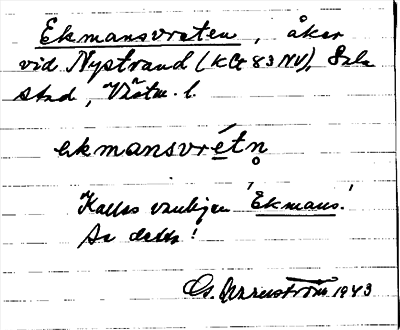 Ekmansvreten, åker
vid Nystrand (KCt 83 NV), Sala
stad, Västm. l.
ekmansvrétn̥
Kallas vanligen 'Ekmans'.
Se detta!
1943